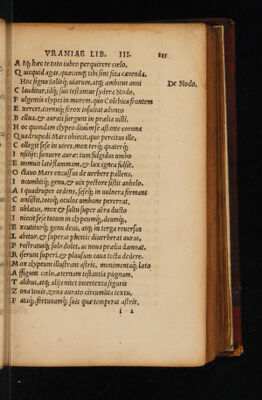 VRANIAE LIB. III. 235
A tq; hæc te toto iubeo perquirere cœlo,
Q uicquid agas, quæcunq; tibi sint fata canenda.
H oc signo Solisq; uiarum, atq; ambitus anni De Nodo.
C lauditur, idq; suo testantur sydere Nodo.
F ulgentis clypei in morem, quo Colchica frontem
E xercet, cornuq; ferox insultat adunco
B ellua, & auratis surgunt in prælia uelis.
H oc quondam clypeo diuûm se astante corona
Q uadrupedi Mars obiecit, quo percitus ille,
C ollegit sese in uires, mox terq; quaterq;
I nsilijt: sonuere auræ: tum fulgidus umbo
E uomuit late flammam, & lux ignea fulsit.
O ctauo Mars excussus de uerbere pallens,
I ncumbitq; genu, & uix pectore sistit anhelo.
A t quadrupes cedens, seseq; in uulnera firmans
C onsistit, toruoq; oculos umbone pererrat.
S ublatus, mox & saltu super aëra ducto
I niecit sese totum in clypeumq;, deumq;
E xcutiturq; genu deus, atq; in terga reuersus
L abitur, & superas plantis diuerberat auras,
P rostratusq; solo dolet, ac noua prælia damnat.
R iserunt superi, & plausum caua tecta dedere.
M ox clypeum illustrant astris, monimentaq; leto
A ffigunt cœlo, æternam testantia pugnam.
T alibus, atq; alijs nitet intertexta figuris
Z ona Iouis, zona aurato circumlita textu,
F atisq;, fortunamq; suis quæ temperat astris.
i 2